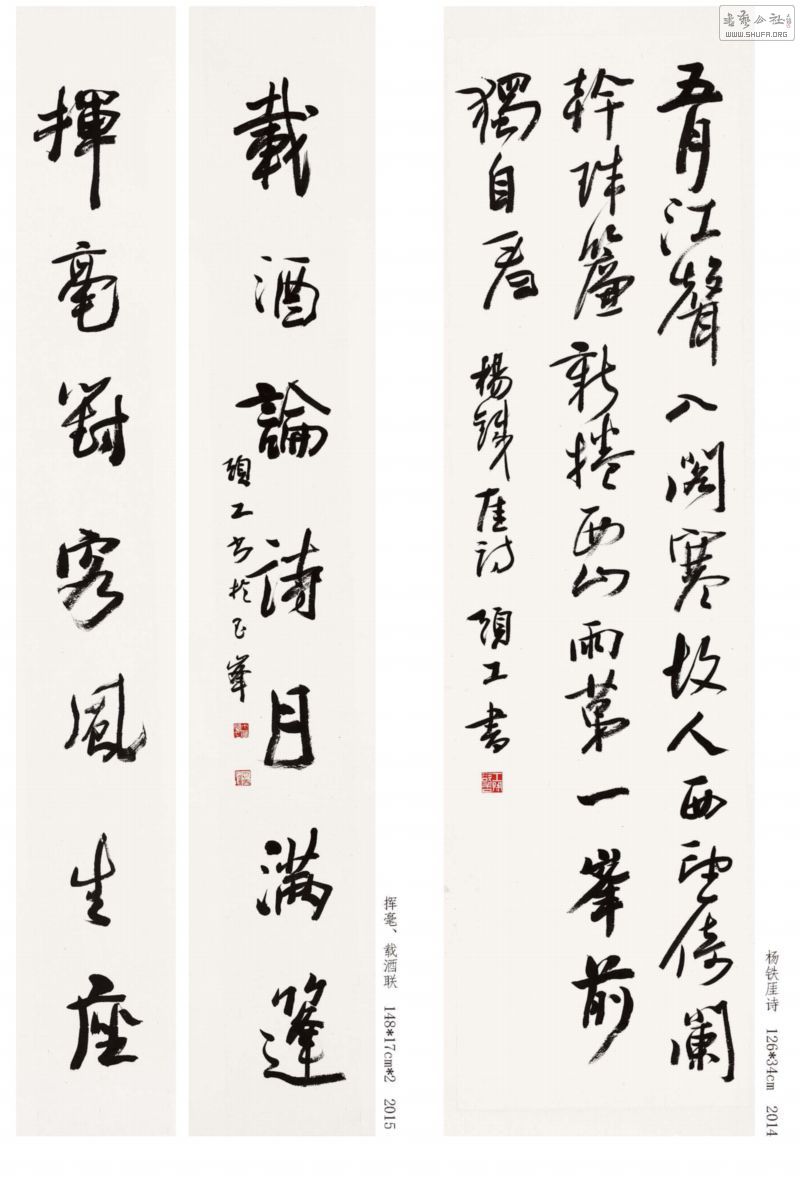 書藝公社
WWW.SHUFA.ORG
五月江聲入閣寒故人西望倚闌
幹珠簾新捲西山雨第一峯前
獨自看 楊銕厓詩 項工書
杨铁厓诗 126*34cm 2014
載酒論詩月滿篷
項工書於 峯
揮毫對客風生座
挥毫、载酒联 148*17cm*2 2015